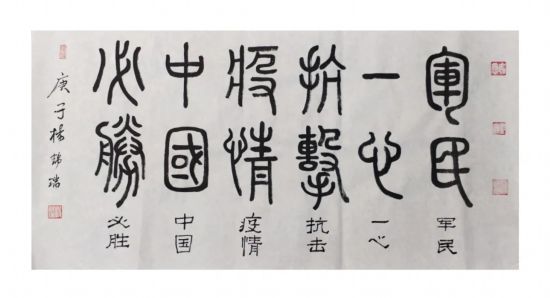 軍民
一心
抗擊
疫情
中國
必勝
军民
一心
抗击
疫情
中国
必胜
庚子楊